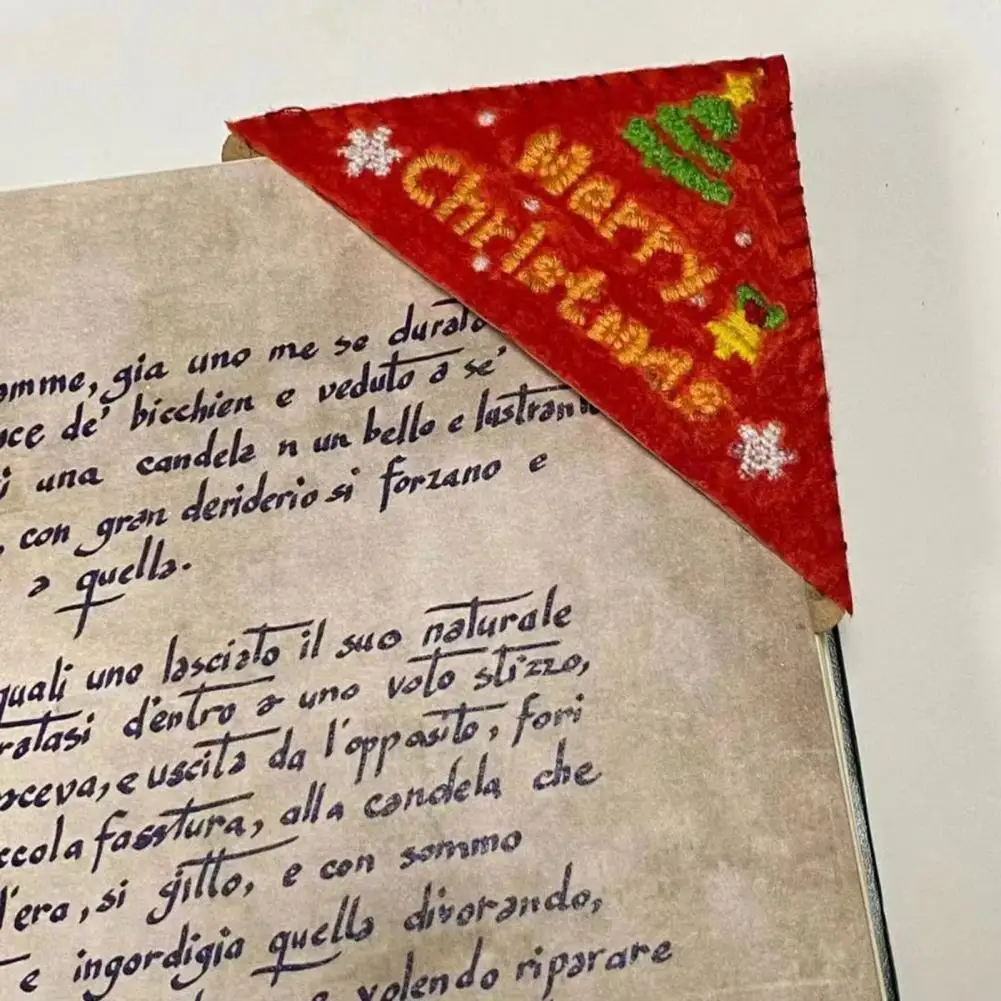 Merry
Christmas
amme, gia uno me se durato
de' bicchien e veduto a se'
una candela n un bello e lustrante
, con gran deriderio si forzano e
a quella.
quali uno lasciato il suo naturale
dentro a uno voto stizzo,
e uscita da l'opposito, fori
fasstura, alla candela che
l'era, si gitto, e con sommo
e ingordigia quella divorando,
volendo riparare